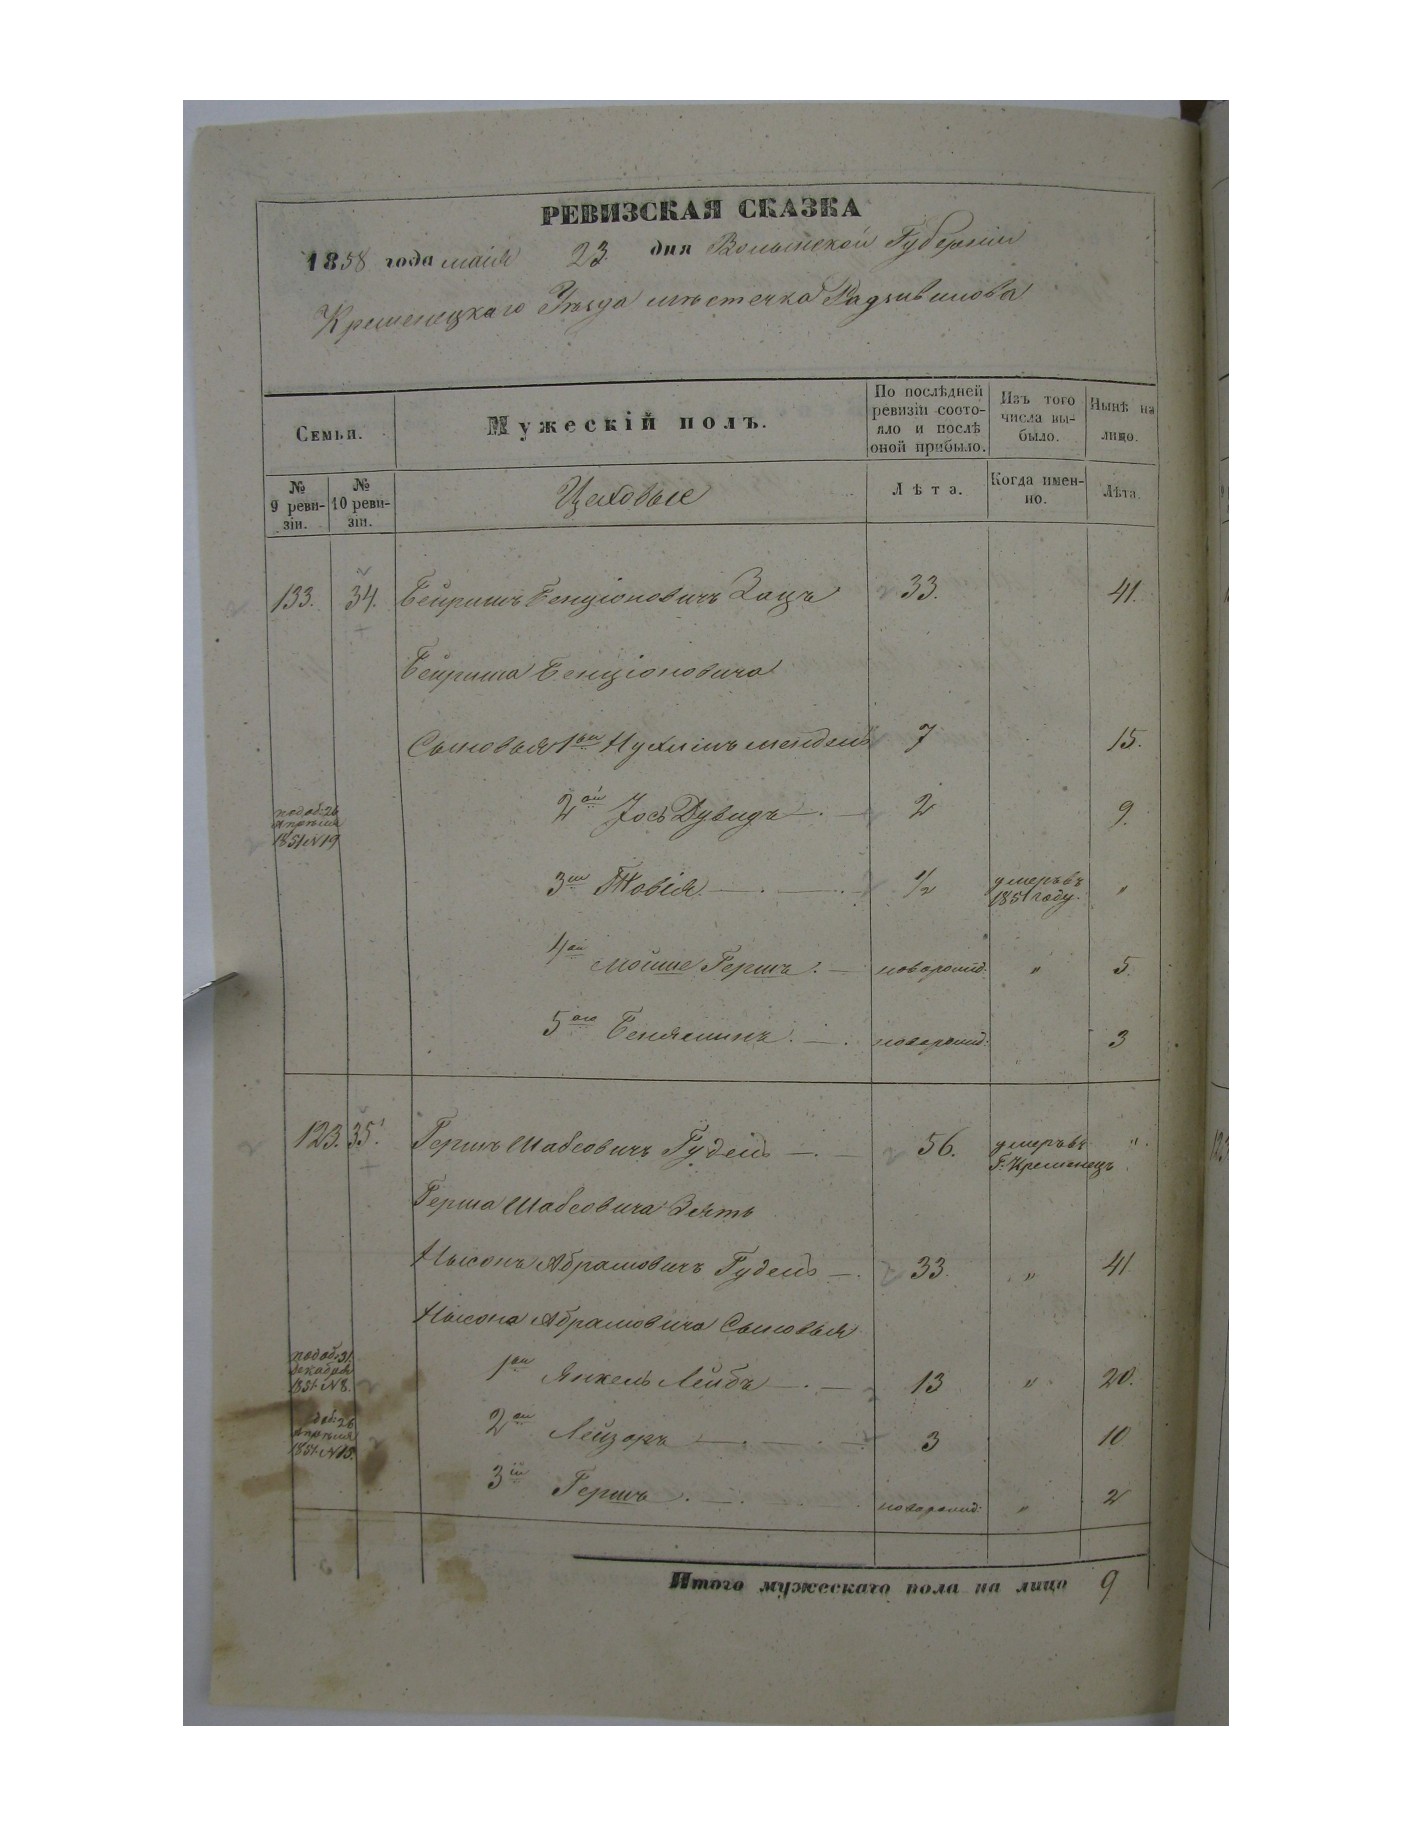 РЕВИЗСКАЯ СКАЗКА
1858 года маія 23. дня Волынской Губерніи
Кременецкаго Уѣзда мѣстечка Радзивилова
Семьи.
Мужескій полъ.
По послѣдней ревизіи состояло и послѣ оной прибыло.
Изъ того числа выбыло.
Нынѣ на лицо.
№ 9 ревизіи.
№ 10 ревизіи.
Цеховые
Лѣта.
Когда именно.
Лѣта.
133. 34. Бейришъ Бенціоновичъ Зацъ 33. 41.
Бейриша Бенціоновича
Сыновья 1ый Нухимъ Мендель 7 15.
подоб: 26 апрѣля 1851 N 19
2ой Іось Дувидъ 2 9.
3ій Товія ½ умеръ въ 1851 году. "
4ый Мойше Гершъ новорожд: " 5.
5ый Беняминъ новорожд: 3
123. 35. Гершъ Шабсовичъ Гудель 56. умеръ въ Г. Кременецъ "
Герша Шабсовича Зять
Нысонъ Абрамовичъ Гудель 33. " 41
Нысона Абрамовича Сыновья
подоб: 31. декабря 1851 N 8.
1ый Янкель Лейбъ 13 " 20.
26 апрѣля 1851 N 15.
2ой Лейзоръ 3 10
3ій Гершъ новорожд: " 2
Итого мужескаго пола на лицо 9